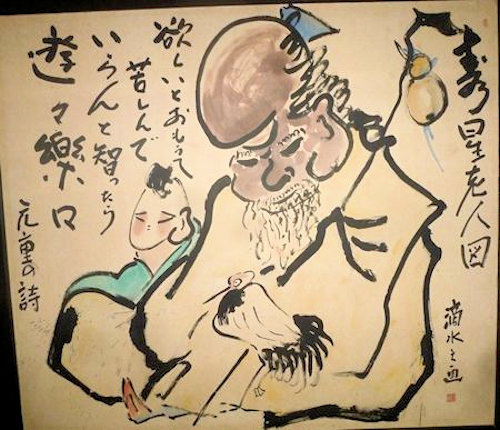 壽星老人図
滴水之画
欲しいとおもって
苦しんで
いらんと智ったら
遊々樂
元重の詩